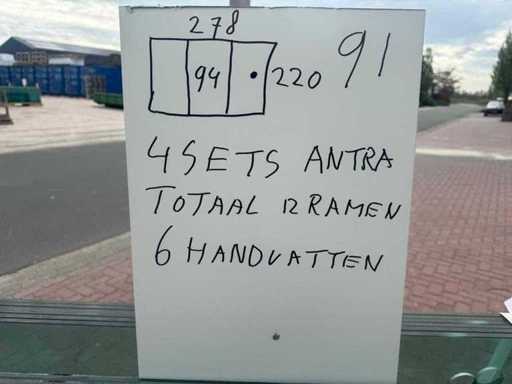 278
94
220
91
4 SETS ANTRA
TOTAAL 12 RAMEN
6 HANDVATTEN